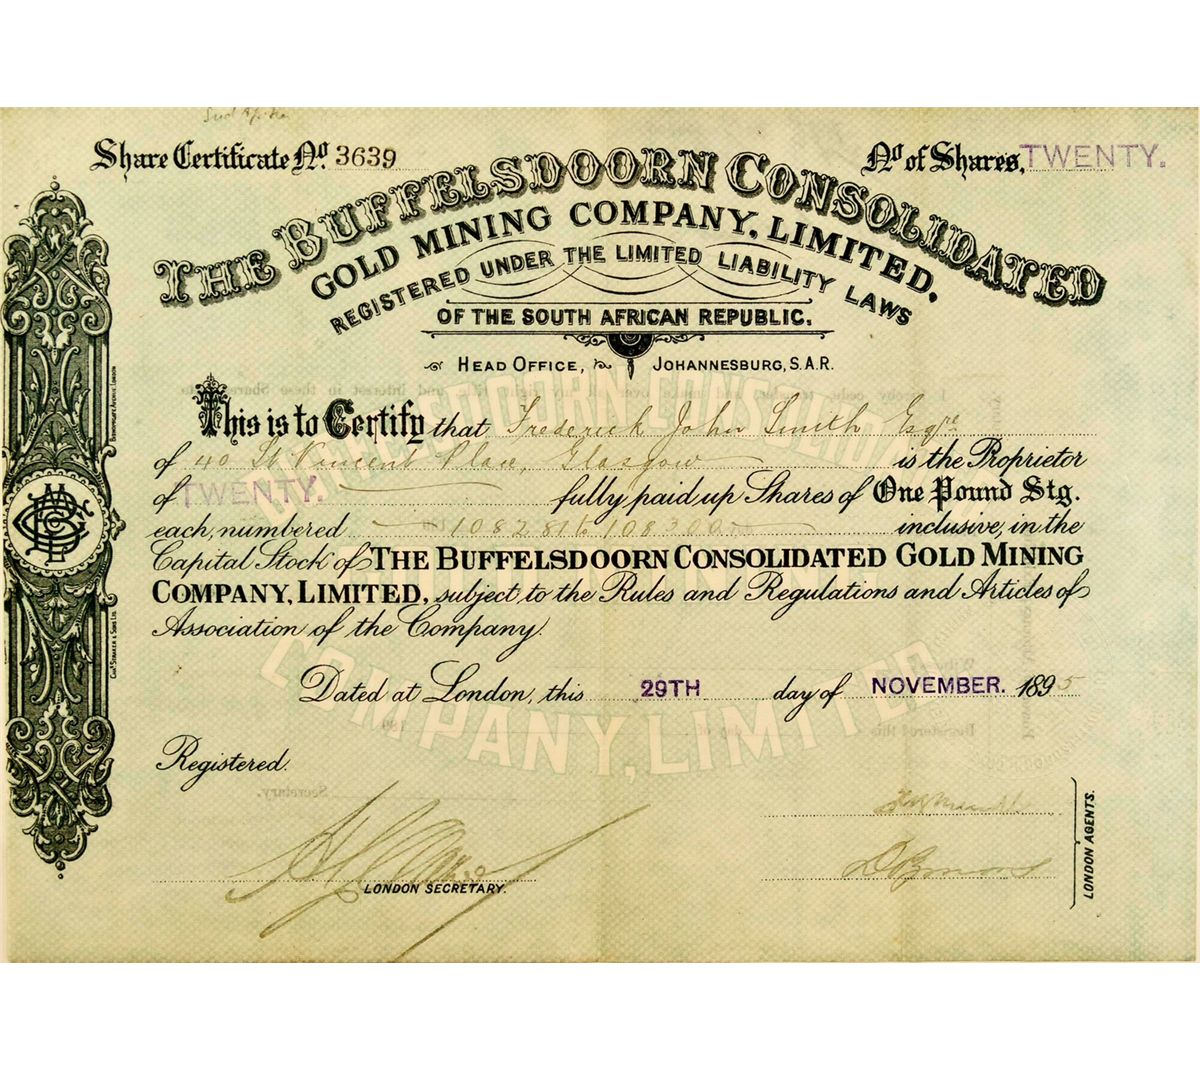 Share Certificate No. 3639
No of Shares, TWENTY.
THE BUFFELSDOORN CONSOLIDATED
GOLD MINING COMPANY, LIMITED.
REGISTERED UNDER THE LIMITED LIABILITY LAWS
OF THE SOUTH AFRICAN REPUBLIC.
HEAD OFFICE, JOHANNESBURG, S.A.R.
This is to Certify that Frederick John Smith Esqre
of 40 St Vincent Place, Glasgow is the Proprietor
of TWENTY. fully paid up Shares of One Pound Stg.
each, numbered 108281 to 108300 inclusive, in the
Capital Stock of THE BUFFELSDOORN CONSOLIDATED GOLD MINING
COMPANY, LIMITED, subject to the Rules and Regulations and Articles of
Association of the Company.
Dated at London, this 29TH day of NOVEMBER. 1895
Registered.
LONDON SECRETARY.
LONDON AGENTS.
BISHOPSGATE AVENUE, LONDON
CHAS STRAKER & SONS LTD.
COMPANY, LIMITED